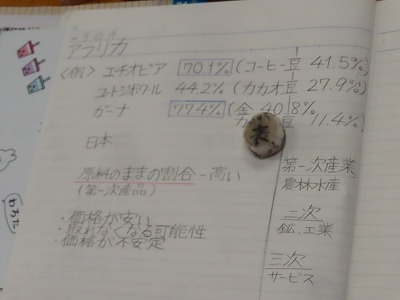 アフリカ
〈例〉エチオピア 70.1% (コーヒー豆 41.5%)
コートジボワール 44.2% (カカオ豆 27.9%)
ガーナ 77.4% (金 40.8%
カカオ豆 11.4%)
日本
原料のままの割合-高い
(第一次産品)
・価格が安い
・取れなくなる可能性
・価格が不安定
第一次産業
農林水産
二次
鉱、工業
三次
サービス